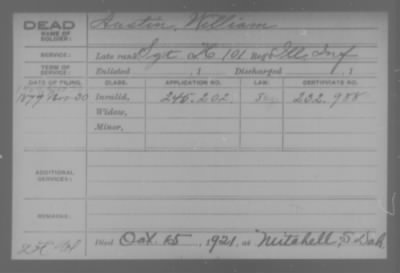 DEAD
NAME OF SOLDIER:
Austin, William
SERVICE:
Late rank Sgt H 101 Reg't Ill. Inf
TERM OF SERVICE:
Enlisted , 1 Discharged , 1
DATE OF FILING. CLASS. APPLICATION NO. LAW. CERTIFICATE NO.
1879 Nov-20 Invalid, 245.202 232.988
Widow,
Minor,
ADDITIONAL SERVICES:
REMARKS:
Died Oct 15, 1921, at Mitchell, S Dak